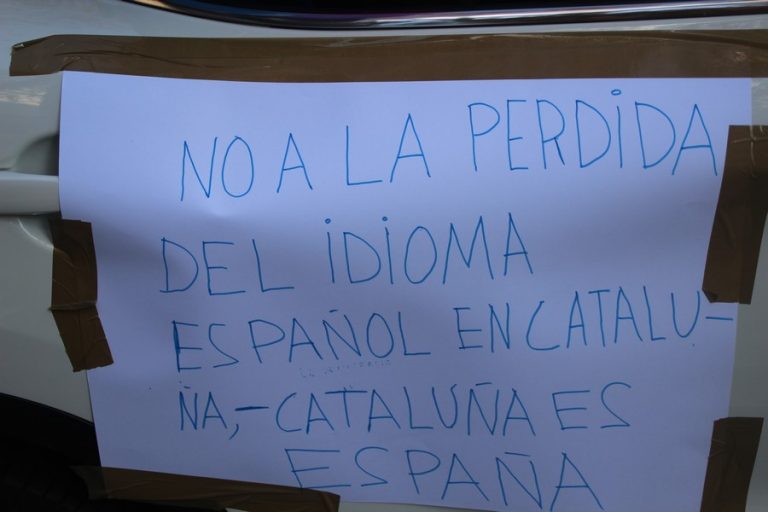 NO A LA PERDIDA
DEL IDIOMA
ESPAÑOL EN CATALU-
ÑA,-CATALUÑA ES
ESPAÑA